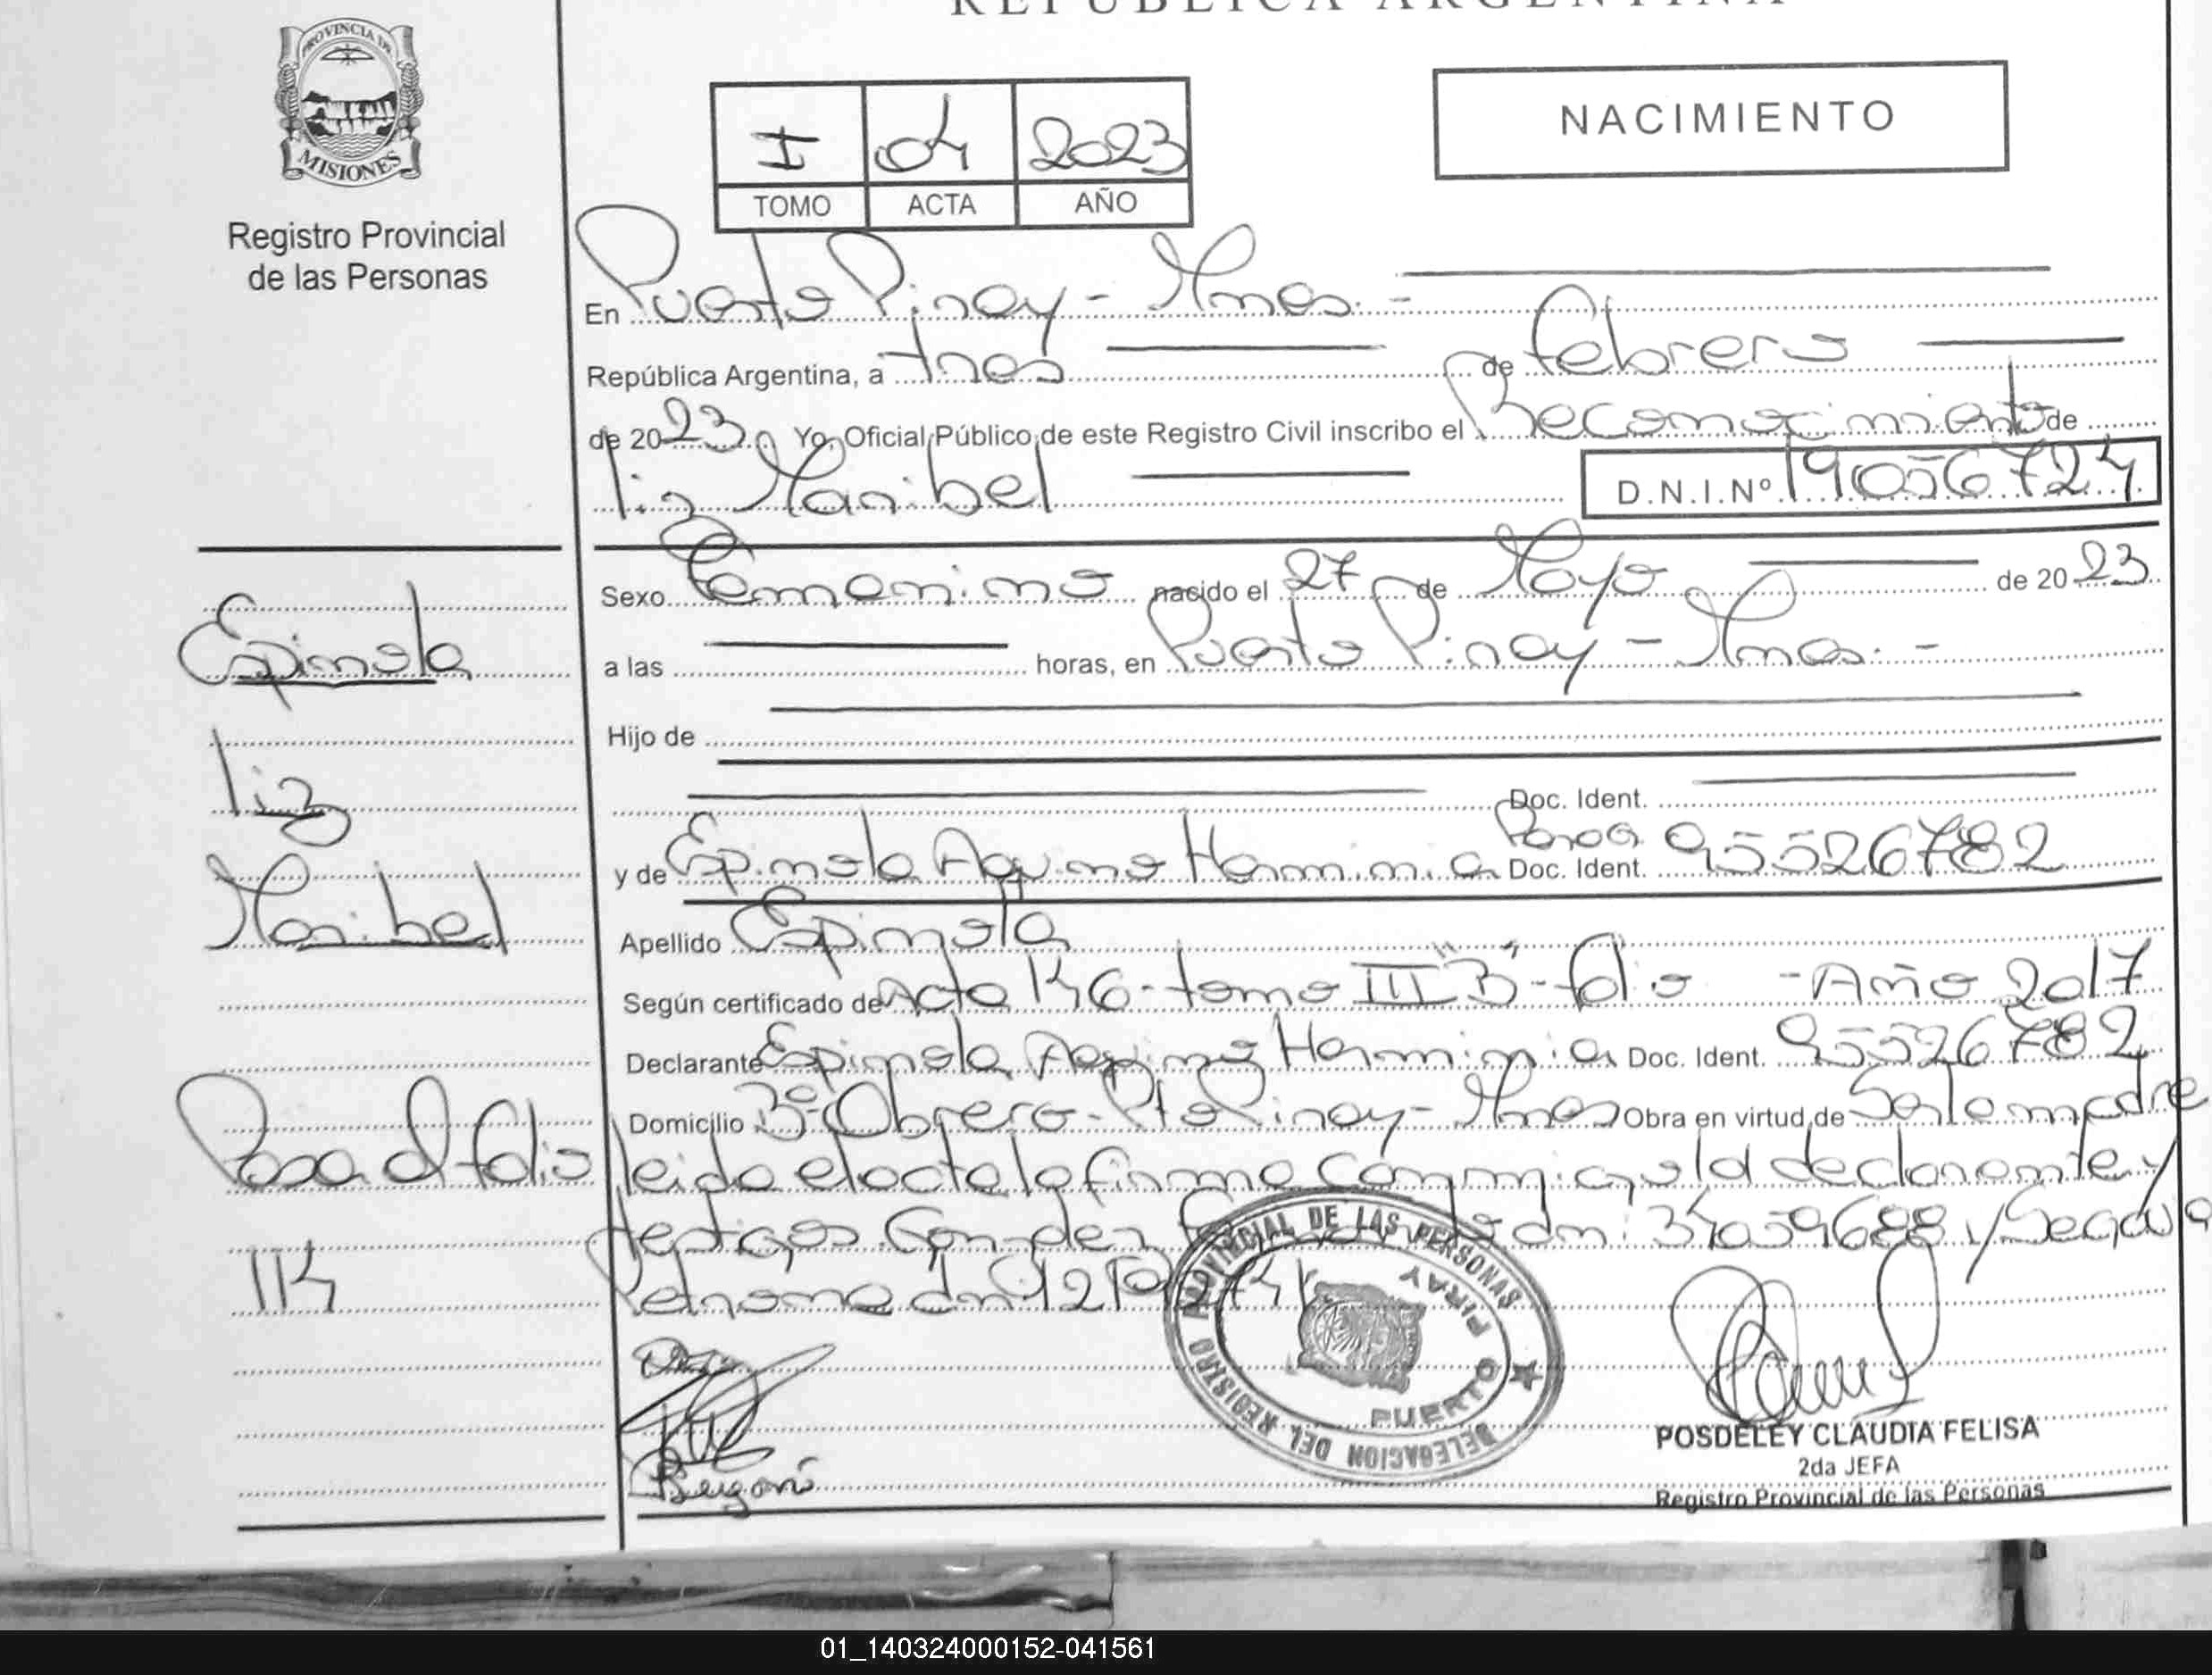 REPUBLICA ARGENTINA
PROVINCIA DE
MISIONES
Registro Provincial
de las Personas
I 04 2023
TOMO ACTA AÑO
NACIMIENTO
En Puerto Piray - Mnes. -
República Argentina, a tres de febrero
de 2023. Yo, Oficial Público de este Registro Civil inscribo el Reconocimiento de
Liz Maribel D.N.I.Nº 19056724
Sexo Femenino nacido el 27 de Mayo de 2023
a las horas, en Puerto Piray - Mnes. -
Hijo de
Doc. Ident.
y de Espinola Aquino Herminia Doc. Ident. 95526782
Apellido Espinola
Según certificado de Acta 146 - tomo III "B" - folio - Año 2017
Declarante Espinola Aquino Herminia Doc. Ident. 95526782
Domicilio Bº Obrero - Pto Piray - Mnes Obra en virtud de Ser la madre
leida el acta la firma conmigo la declarante y
testigos dni: 34059688 y
dni
Espinola
Liz
Maribel
Pasa al folio
114
DELEGACION DEL REGISTRO PROVINCIAL DE LAS PERSONAS
PUERTO PIRAY
POSDELEY CLAUDIA FELISA
2da JEFA
Registro Provincial de las Personas
01_140324000152-041561